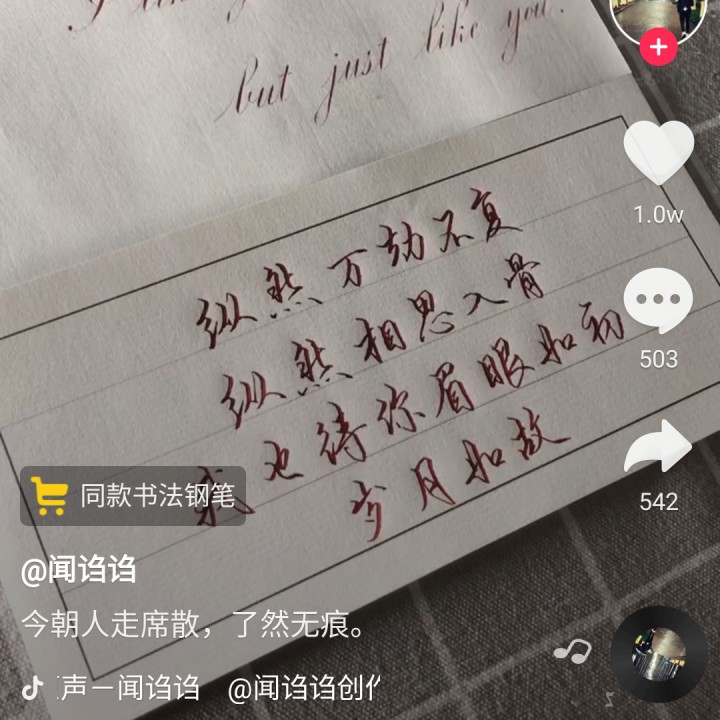 but just like you.
纵然万劫不复
纵然相思入骨
我也待你眉眼如初
岁月如故
1.0w
503
542
同款书法钢笔
@闻诌诌
今朝人走席散，了然无痕。
声一闻诌诌 @闻诌诌创作